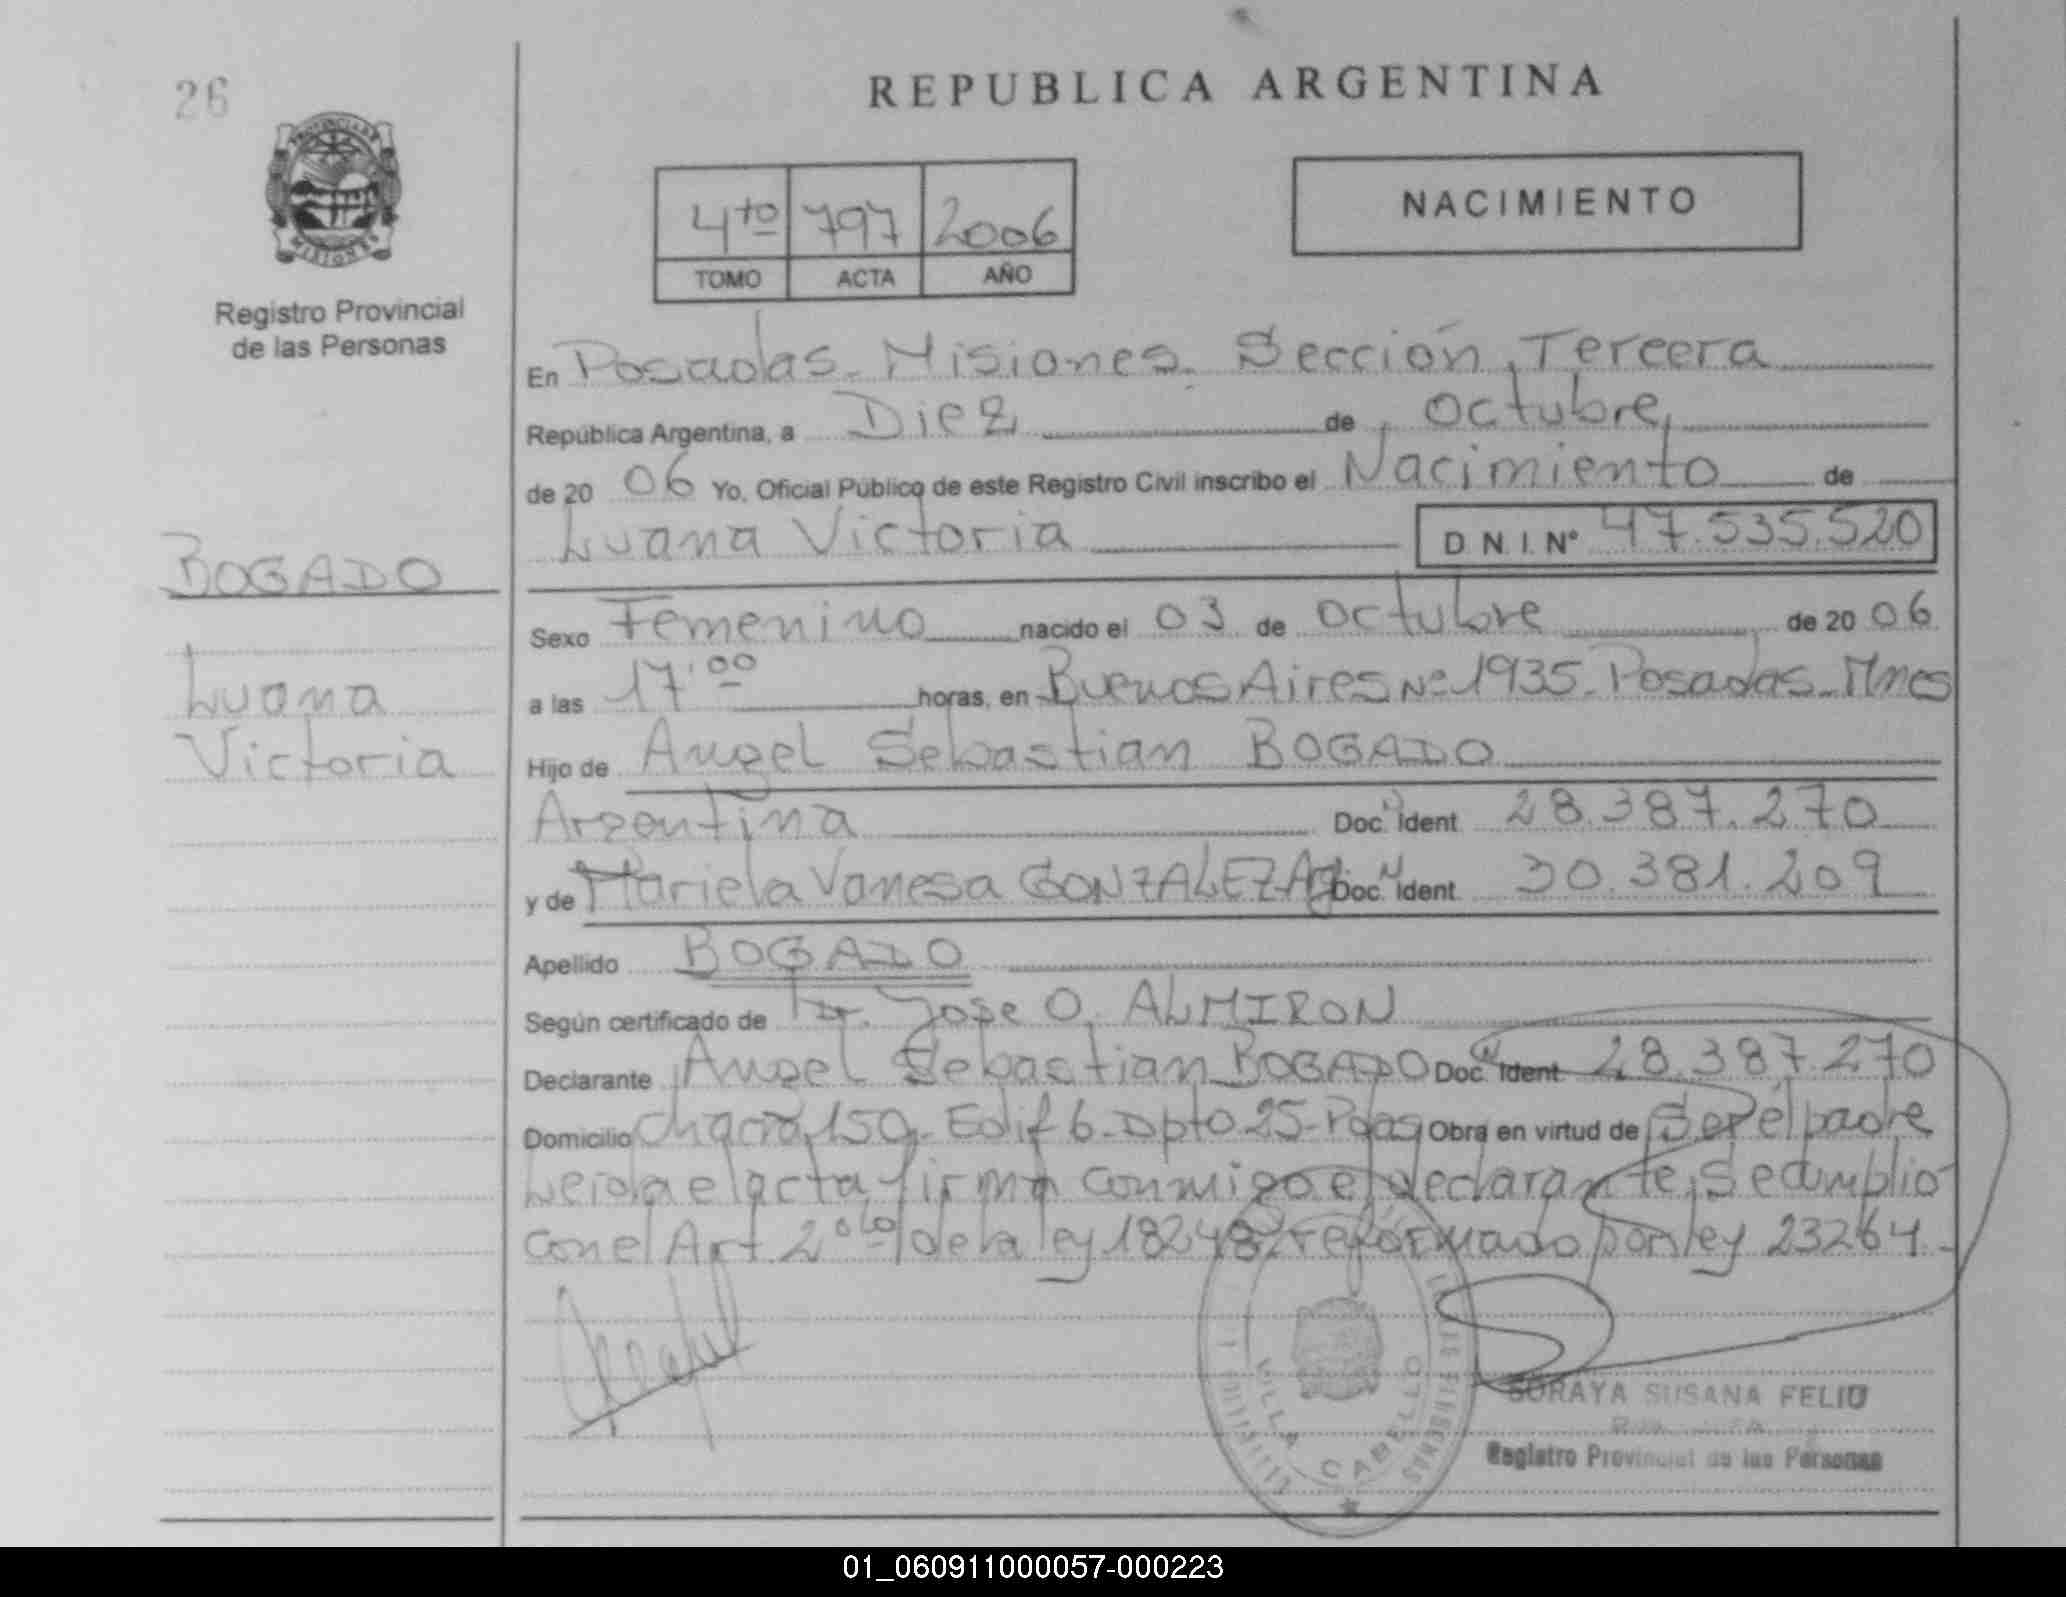 26
REPUBLICA ARGENTINA
PROVINCIA DE
MISIONES
Registro Provincial
de las Personas
4to 797 2006
TOMO ACTA AÑO
NACIMIENTO
En Posadas - Misiones. Sección Tercera
República Argentina, a Diez de octubre
de 20 06 Yo, Oficial Público de este Registro Civil inscribo el Nacimiento de
Luana Victoria D.N.I. Nº 47.535.520
BOGADO
Luana
Victoria
Sexo Femenino nacido el 03 de octubre de 20 06
a las 17:00 horas, en Buenos Aires Nº 1935 - Posadas - Mnes
Hijo de Angel Sebastian BOGADO
Argentina Doc. Ident. 28.387.270
y de Mariela Vanesa GONZALEZ Arg. Doc. Ident. 30.381.209
Apellido BOGADO
Según certificado de Dr. Jose O. ALMIRON
Declarante Angel Sebastian BOGADO Doc. Ident. 28.387.270
Domicilio Chacra 150 - Edif 6 - Dpto 25 - Pdas Obra en virtud de Ser el padre
Leida el acta firma conmigo el declarante, Se cumplio
con el Art. 2º de la ley 18248 reformado por ley 23264.-
VILLA CABELLO
SORAYA SUSANA FELIU
Registro Provincial de las Personas
01_060911000057-000223